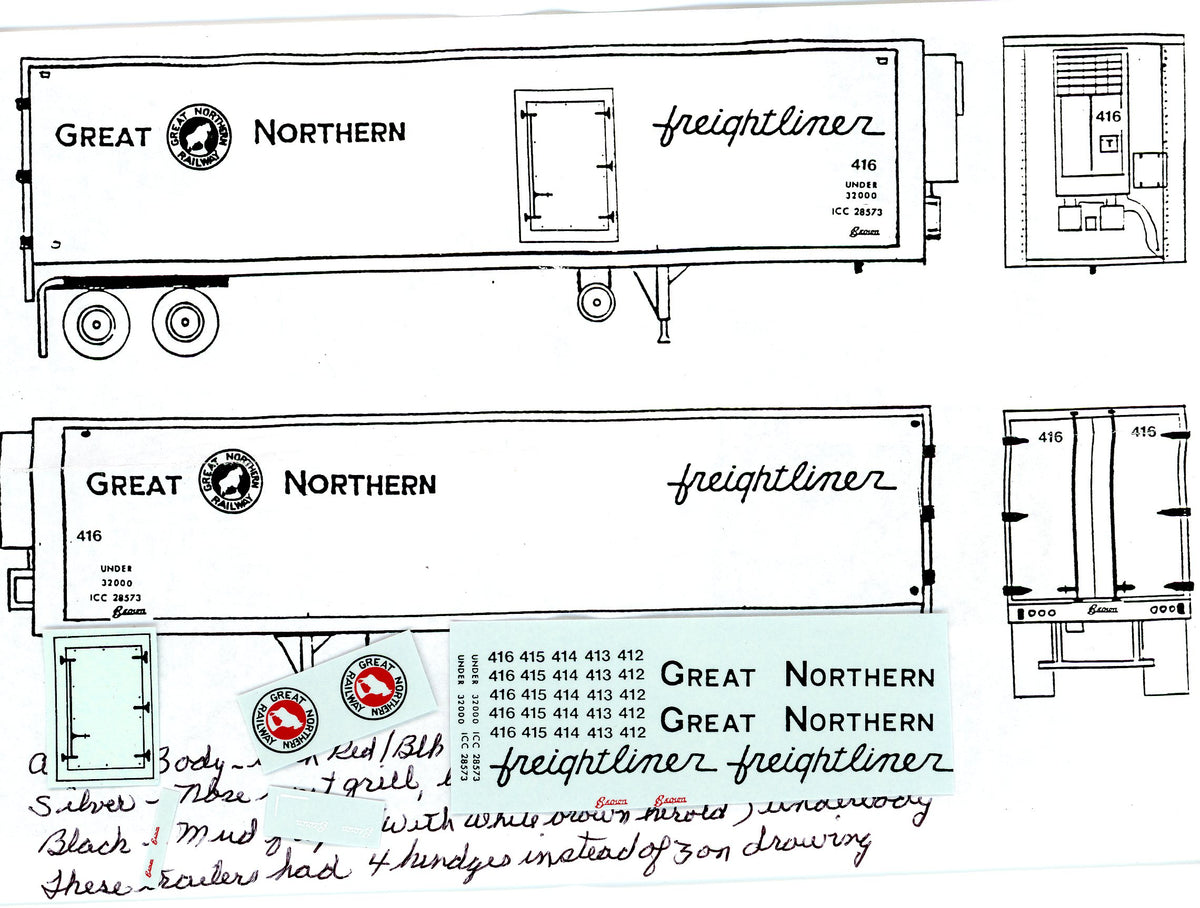 GREAT GREAT NORTHERN RAILWAY NORTHERN
freightliner
416
UNDER
32000
ICC 28573
Brown
416
T
GREAT GREAT NORTHERN RAILWAY NORTHERN
freightliner
416
UNDER
32000
ICC 28573
Brown
416 416
Brown
GREAT NORTHERN RAILWAY
GREAT NORTHERN RAILWAY
UNDER 32000 ICC 28573
UNDER 32000 ICC 28573
416 415 414 413 412
416 415 414 413 412
416 415 414 413 412
416 415 414 413 412
416 415 414 413 412
GREAT NORTHERN
GREAT NORTHERN
freightliner freightliner
Brown Brown
Body - Red/Blk
Silver - Nose grill,
Black - Mud with white brown herold, underbody
These trailers had 4 hindges instead of 3 on drawing